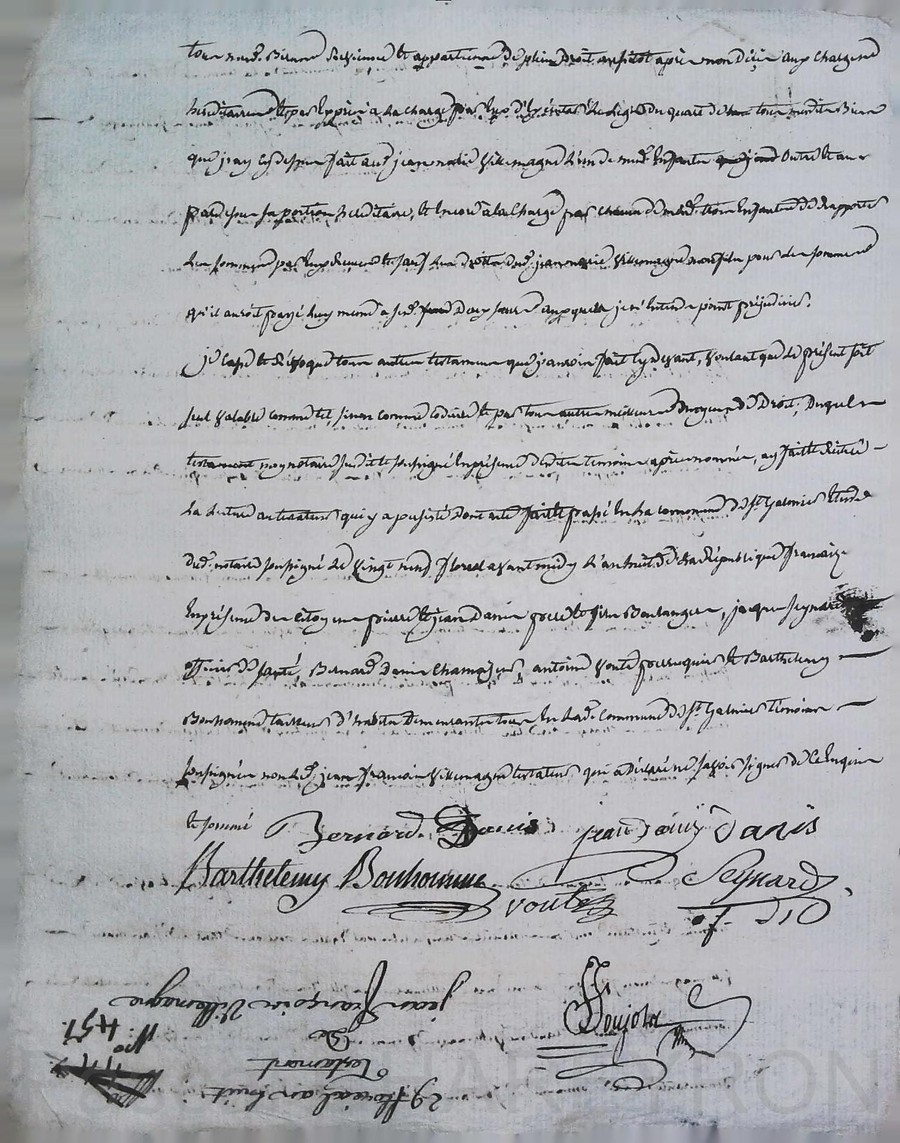 tous mesd. Biens veux et appartienne de plein droit aussitôt après mon décès aux charges
héréditaires et par exprès à la charge par eux d'exécuter le legs du quart de tous mesdits Biens
que j'ay cy dessus fait aud. jean marie Villemagne l'un de mesd. Enfants outre et au
par dessus sa portion héréditaire, et encore à la charge par chacun de mesd. trois Enfants de Rapporter
les sommes par Eux reçues et sauf les droits dud. jean marie Villemagne mon fils pour les sommes
qu'il auroit payé luy meme a sesd. Deux sœurs auxquels je n'entends point préjudicier.
je casse et Révoque tous autres testaments que j'aurois fait cy devant, voulant que le présent soit
seul valable comme tel, sinon comme codicile et par tous autres meilleurs moyens de Droit, Duquel
testament moy notaire susdit et soussigné En présence desdits témoins après nommés, ay fait et réitéré
la lecture au testateur qui y a persisté dont acte fait et passé En la commune de St Galmier Etude
dud. notaire soussigné le vingt neuf floreal avant midy l'an huit de la République française
En présence des Citoyens pierre et jean Danis père et fils Boulangers, jacques Seynard
officier de santé, Bernard Danis Chamoiseur, antoine Voute perruquier et Barthelemy
Bonhomme tailleur d'habits Demeurants tous En lad. Commune de St Galmier témoins
soussignés non led. jean francois Villemagne testateur qui a déclaré ne savoir signer de ce Enquis
et sommé
Bernard Danis jean Danis
Barthelemy Bonhomme Seynard
voute of. DSD
jean françois Villemagne
De
testament
29 floreal an huit
N° 451